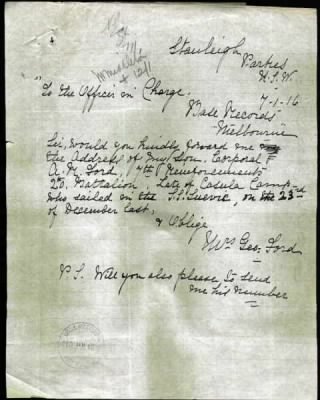 Stanleigh
Parkes
N.S.W.
7-1-16
"To the Officer in Charge.
Base Records
Melbourne
Sir, would you kindly forward me
the Address of my Son, Corporal F
A. M. Ford, 7th Reinforcements
20 Battalion, Late of Casula Camp
who sailed in the S.S. Suevic, on the 23rd
of December last.
& Oblige
Mrs Geo. Ford
P.S. Will you also please to send
me his number